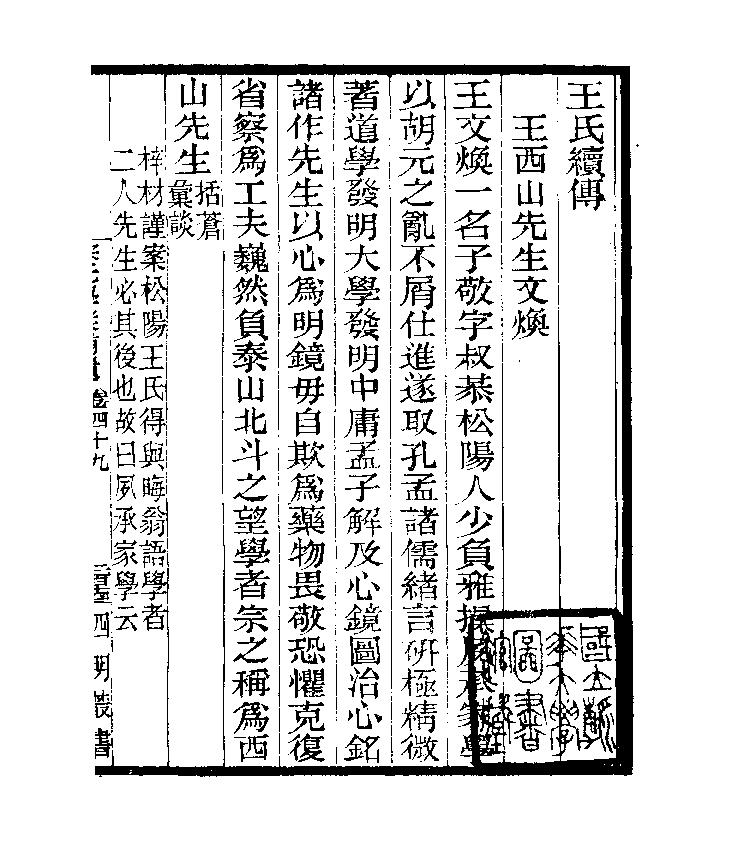 王氏續傳
王西山先生文煥
王文煥一名子敬字叔恭松陽人少負雅操夙承家學
以胡元之亂不屑仕進遂取孔孟諸儒緒言硏極精微
著道學發明大學發明中庸孟子解及心鏡圖治心銘
諸作先生以心爲明鏡毋自欺爲藥物畏敬恐懼克復
省察爲工夫巍然負泰山北斗之望學者宗之稱爲西
山先生括蒼
彙談
梓材謹案松陽王氏得與晦翁語學者
二人先生必其後也故曰夙承家學云
卷四十九
四明叢書